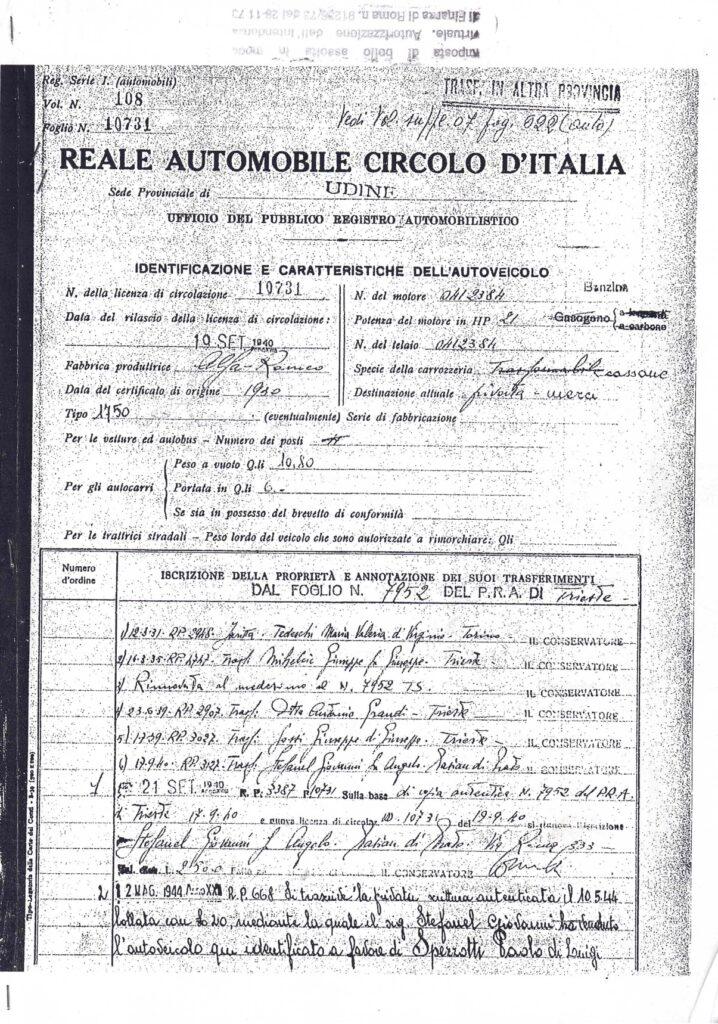 imposta di bollo assolta in modo
virtuale. Autorizzazione dell'Intendenza
di Finanza di Roma n. 91256/73 del 28-11-73
Reg. Serie I. (automobili)
Vol. N. 108
Foglio N. 10731
TRASF. IN ALTRA PROVINCIA
Vedi Vol. suppl. 07 fog. 622 (auto)
REALE AUTOMOBILE CIRCOLO D'ITALIA
Sede Provinciale di UDINE
UFFICIO DEL PUBBLICO REGISTRO AUTOMOBILISTICO
IDENTIFICAZIONE E CARATTERISTICHE DELL'AUTOVEICOLO
N. della licenza di circolazione 10731
Data del rilascio della licenza di circolazione:
19 SET. 1940
Fabbrica produttrice Alfa-Romeo
Data del certificato di origine 1930
Tipo 1750 (eventualmente) Serie di fabbricazione
Benzina
N. del motore 0412384
Potenza del motore in HP 21 Gasogeno a legna a carbone
N. del telaio 0412384
Specie della carrozzeria Trasformabile cassone
Destinazione attuale privata - merci
Per le vetture ed autobus - Numero dei posti
Per gli autocarri
Peso a vuoto Q.li 10,80
Portata in Q.li 6.-
Se sia in possesso del brevetto di conformità
Per le trattrici stradali - Peso lordo del veicolo che sono autorizzate a rimorchiare: Q.li
Numero d'ordine
ISCRIZIONE DELLA PROPRIETÀ E ANNOTAZIONE DEI SUOI TRASFERIMENTI
DAL FOGLIO N. 7952 DEL P.R.A. DI Trieste
1) 12-3-31 - R.P. 2948 - Tedeschi Maria Valeria d. Virginio - Torino - IL CONSERVATORE
2) 16-3-35 - R.P. Trasf. Mihelcic Giuseppe f. Giuseppe - Trieste IL CONSERVATORE
3) Rinnovata al medesimo al N. 7952 TS. IL CONSERVATORE
4) 23-6-39 - R.P. 2907 - Trasf. Ditta Antonio Grandi - Trieste IL CONSERVATORE
5) R.P. 3027 - Trasf. Giuseppe d. Giuseppe - Trieste - IL CONSERVATORE
6) 17-9-40 - R.P. 3127 - Trasf. Stefanel Giovanni f. Angelo - Pasian di Prato IL CONSERVATORE
1 21 SET. 1940 R.P. 3387 P. 10731 Sulla base di copia autentica N. 7952 del P.R.A.
di Trieste 17-9-40 e nuova licenza di circolaz. UD. 10731 del 19-9-40 si rinnova l'iscrizione
Stefanel Giovanni f. Angelo - Pasian di Prato - Via Roma 333 -
Val. dich. L. 2500 IL CONSERVATORE
2 12 MAG. 1944 Anno XXII R.P. 668 Si trascrive la privata scrittura autenticata il 10.5.44
bollata con £o 20, mediante la quale il sig. Stefanel Giovanni ha venduto
l'autoveicolo qui identificato a favore di Sperotti Paolo di Luigi